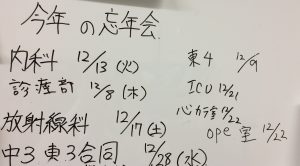 今年の忘年会
内科 12/13 (火)
診療部 12/8 (木)
放射線科 12/17(土)
中3東3合同 12/28(水)
東4 12/9
ICU 12/21
心カテ 12/22
ope室 12/22